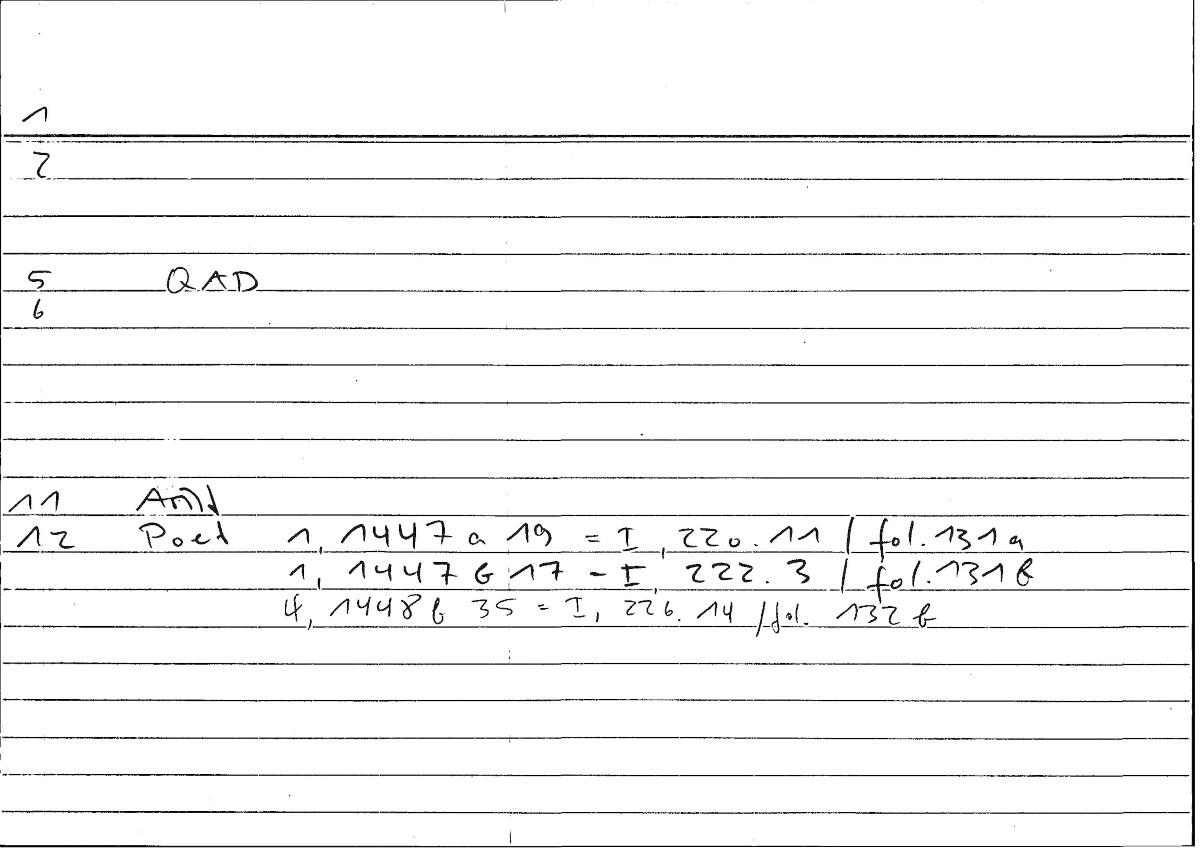 1
2
5 QAD
6
11
12 Poet 1, 1447 a 19 = I, 220.11 / fol. 131a
1, 1447 b 17 = I, 222.3 / fol. 131b
4, 1448 b 35 = I, 226.14 / fol. 132b